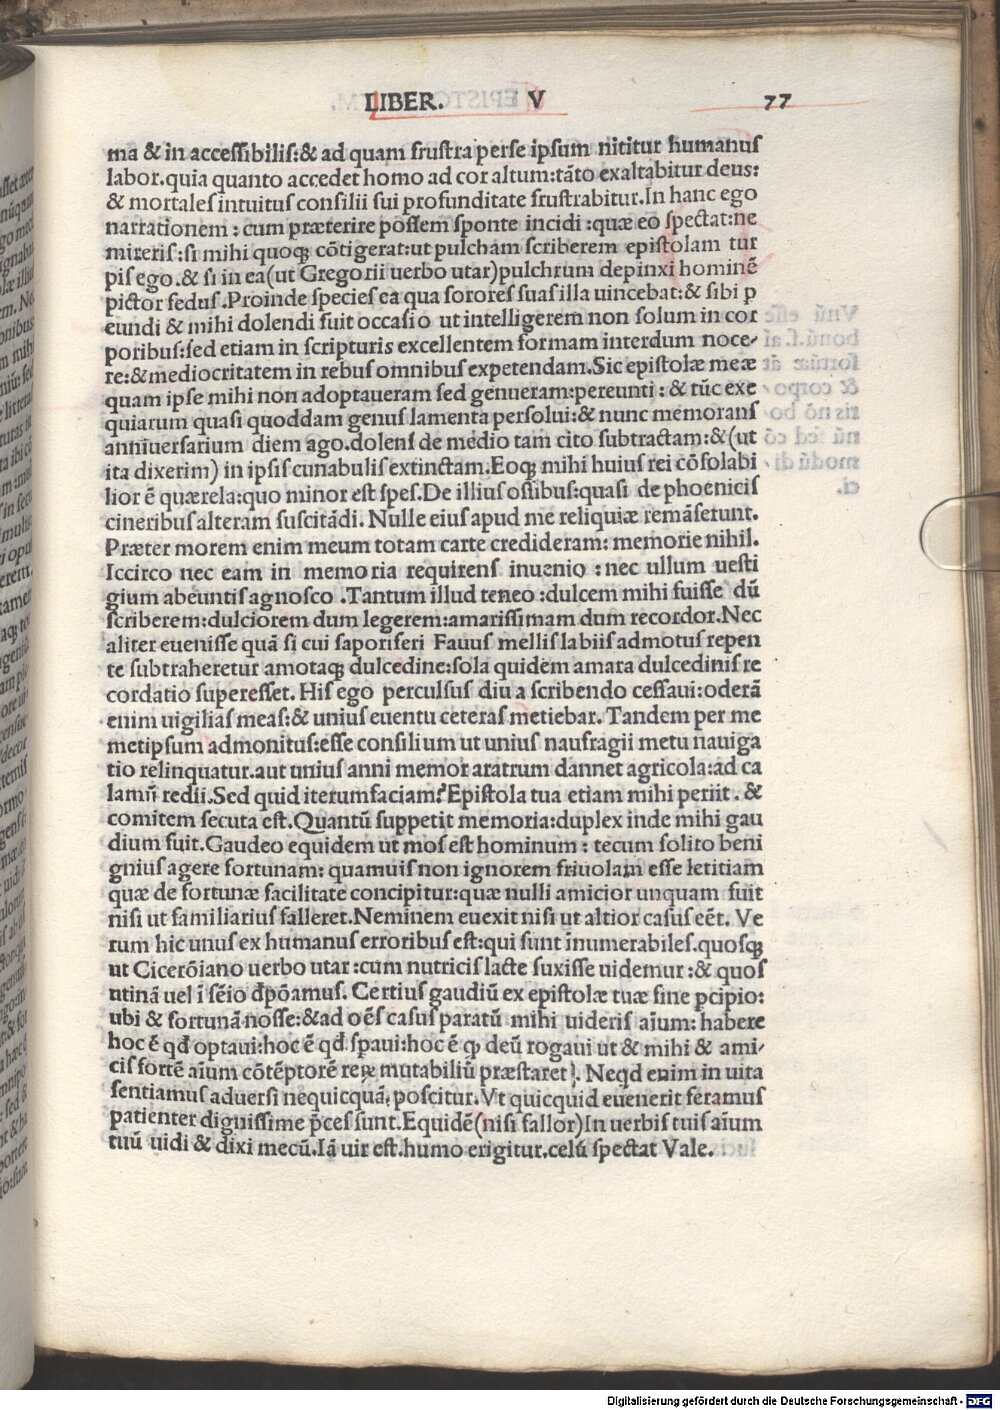 LIBER. V 77
ma & in accessibilis:& ad quam frustra perse ipsum nititur humanus
labor.quia quanto accedet homo ad cor altum:tãto exaltabitur deus:
& mortales intuitus consilii sui profunditate frustrabitur.In hanc ego
narrationem : cum præterire possem sponte incidi :quæ eo spectat:ne
mireris:si mihi quoqꝫ cõtigerat:ut pulcham scriberem epistolam tur
pis ego.& si in ea(ut Gregorii uerbo utar)pulchrum depinxi hominẽ
pictor fedus.Proinde species ea qua sorores suas illa uincebat:& sibi p
eundi & mihi dolendi fuit occasio ut intelligerem non solum in cor
poribus:sed etiam in scripturis excellentem formam interdum noce-
re:& mediocritatem in rebus omnibus expetendam.Sic epistolæ meæ
quam ipse mihi non adoptaueram sed genueram:pereunti : & tũc exe
quiarum quasi quoddam genus lamenta persolui:& nunc memorans
anniuersarium diem ago.dolens de medio tam cito subtractam:& (ut
ita dixerim) in ipsis cunabulis extinctam.Eoqꝫ mihi huius rei cõsolabi
lior ẽ quærela:quo minor est spes.De illius ossibus:quasi de phoenicis
cineribus alteram suscitãdi. Nulle eius apud me reliquiæ remãserunt.
Præter morem enim meum totam carte credideram: memorie nihil.
Iccirco nec eam in memoria requirens inuenio : nec ullum uesti
gium abeuntis agnosco .Tantum illud teneo :dulcem mihi fuisse dũ
scriberem:dulciorem dum legerem:amarissimam dum recordor.Nec
aliter euenisse quã si cui saporiferi Fauus mellis labiis admotus repen
te subtraheretur amotaqꝫ dulcedine:sola quidem amara dulcedinis re
cordatio superesset. His ego perculsus diu a scribendo cessaui:oderã
enim uigilias meas:& unius euentu ceteras metiebar. Tandem per me
metipsum admonitus:esse consilium ut unius naufragii metu nauiga
tio relinquatur.aut unius anni memor aratrum dannet agricola:ad ca
lamũ redii.Sed quid iterum faciam?Epistola tua etiam mihi periit . &
comitem secuta est.Quantũ suppetit memoria:duplex inde mihi gau
dium fuit.Gaudeo equidem ut mos est hominum : tecum solito beni
gnius agere fortunam: quamuis non ignorem friuolam esse letitiam
quæ de fortunæ facilitate concipitur:quæ nulli amicior unquam fuit
nisi ut familiarius falleret.Neminem euexit nisi ut altior casus eẽt. Ve
rum hic unus ex humanus erroribus est:qui sunt ĩnumerabiles.quosqꝫ
ut Cicerõiano uerbo utar :cum nutricis lacte suxisse uidemur :& quos
utinã uel ĩ sẽio đpõamus. Certius gaudiũ ex epistolæ tuæ fine pcipio:
ubi & fortunã nosse:& ad oẽs casus paratũ mihi uideris aĩum: habere
hoc ẽ qđ optaui:hoc ẽ qđ spaui:hoc ẽ ꝙ deũ rogaui ut & mihi & ami-
cis fortẽ aĩum cõtẽptorẽ reꝝ mutabiliũ præstaret. Neqd enim in uita
sentiamus aduersi nequicquã, poscitur. Vt quicquid euenerit feramus
patienter dignissime p̃ces sunt.Equidẽ(nisi fallor)In uerbis tuis aĩum
tuũ uidi & dixi mecũ.Iã uir est.humo erigitur.celũ spectat Vale.
Digitalisierung gefördert durch die Deutsche Forschungsgemeinschaft - DFG